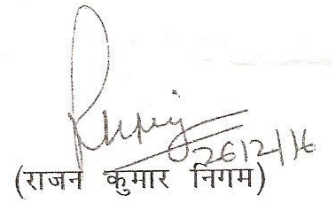 26/2/16
(राजन कुमार निगम)